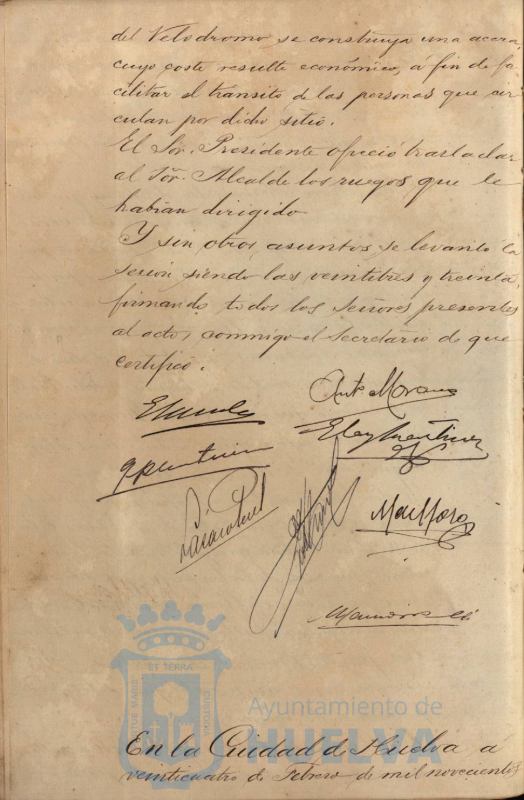 del Velodromo se construya una acera
cuyo coste resulte económico, a fin de fa
cilitar el tránsito de las personas que cir
culan por dicho sitio.
El Sor. Presidente ofreció trasladar
al Sor. Alcalde los ruegos que le
habian dirigido
Y sin otros asuntos se levantó la
sesion siendo las veintitres y treinta,
firmando todos los Señores presentes
al acto, conmigo el Secretario de que
certifico.
Antº Moreno
Eloy Martinez
ET TERRA
CUSTODIA
PORTUS MARIS
Ayuntamiento de
HUELVA
En la Ciudad de Huelva á
veinticuatro de Febrero de mil novecientos